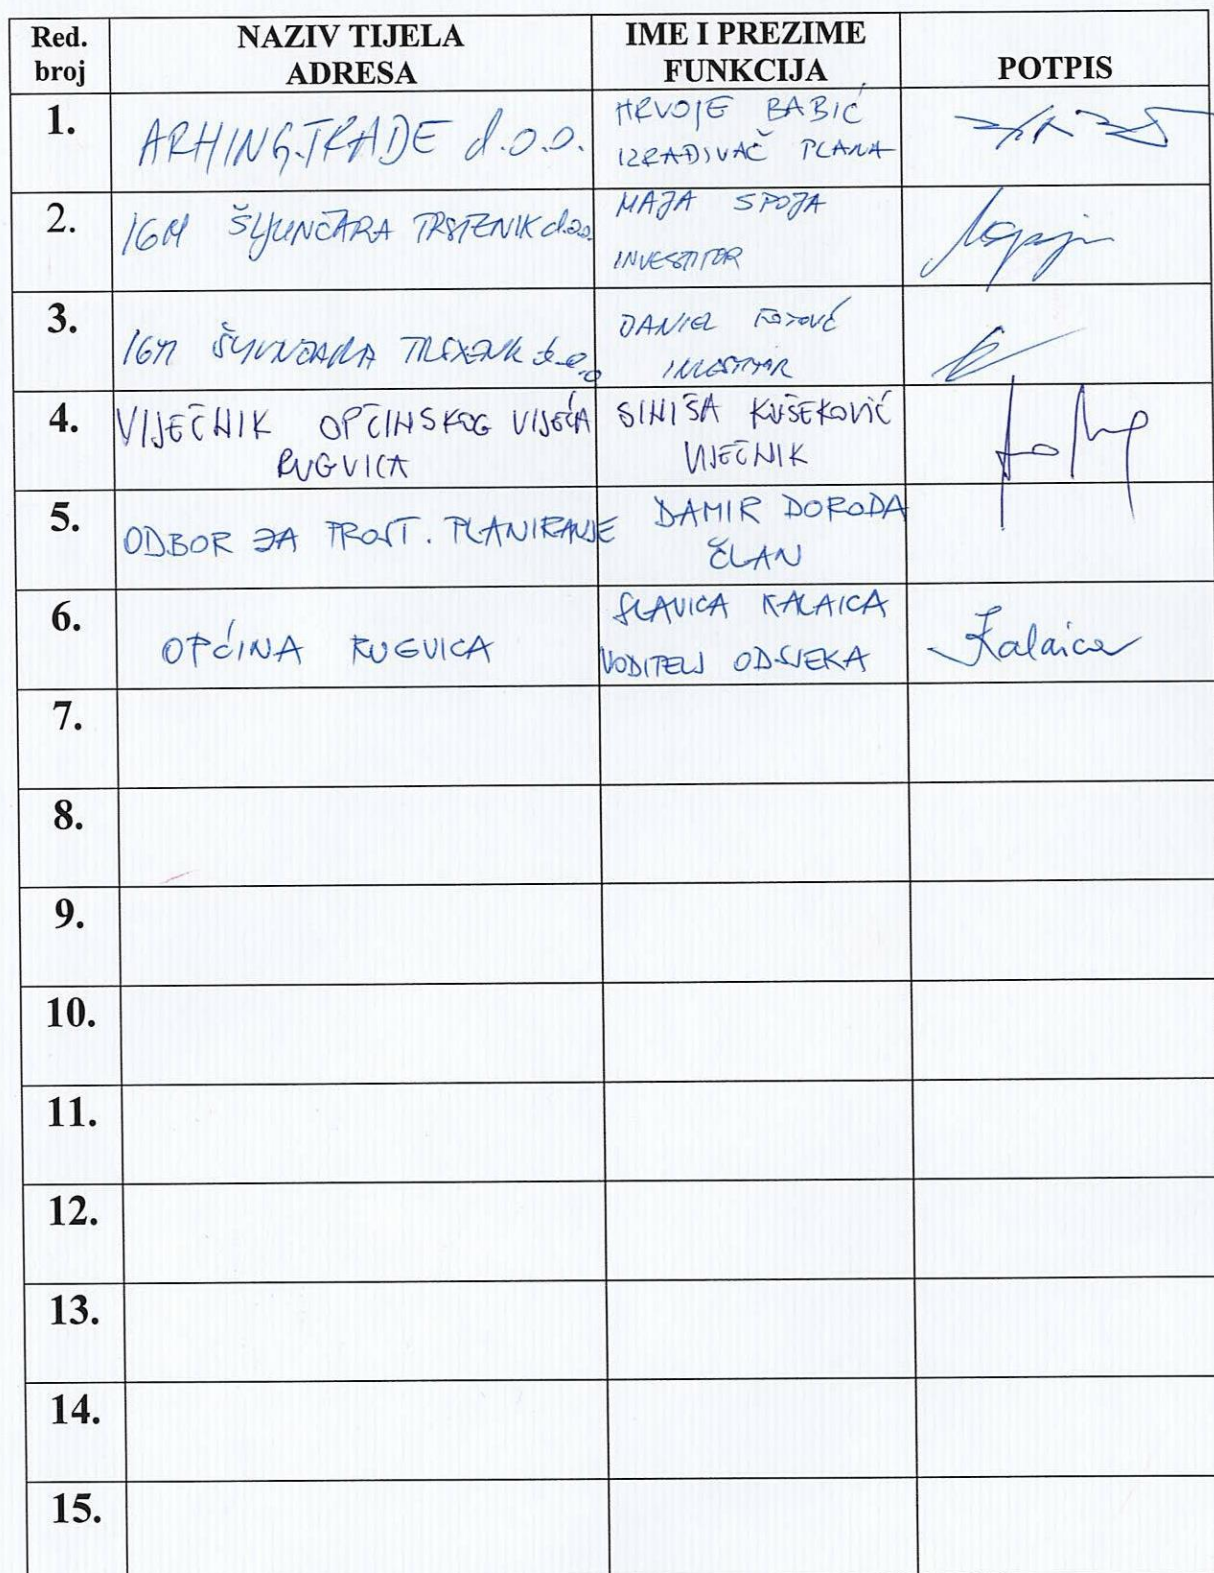 Red. broj NAZIV TIJELA ADRESA IME I PREZIME FUNKCIJA POTPIS
1. ARHING-TRADE d.o.o. HRVOJE BABIĆ
IZRAĐIVAČ PLANA
2. IGM ŠLJUNČARA TRSTENIK d.o.o. MAJA SPOJA
INVESTITOR
3. IGM ŠLJUNČARA TRSTENIK d.o.o DANIEL
INVESTITOR
4. VIJEĆNIK OPĆINSKOG VIJEĆA SINIŠA KUŠEKOVIĆ
RUGVICA VIJEĆNIK
5. ODBOR ZA PROST. PLANIRANJE DAMIR DORODA
ČLAN
6. OPĆINA RUGVICA SLAVICA KALAICA Kalaica
VODITELJ ODSJEKA
7.
8.
9.
10.
11.
12.
13.
14.
15.